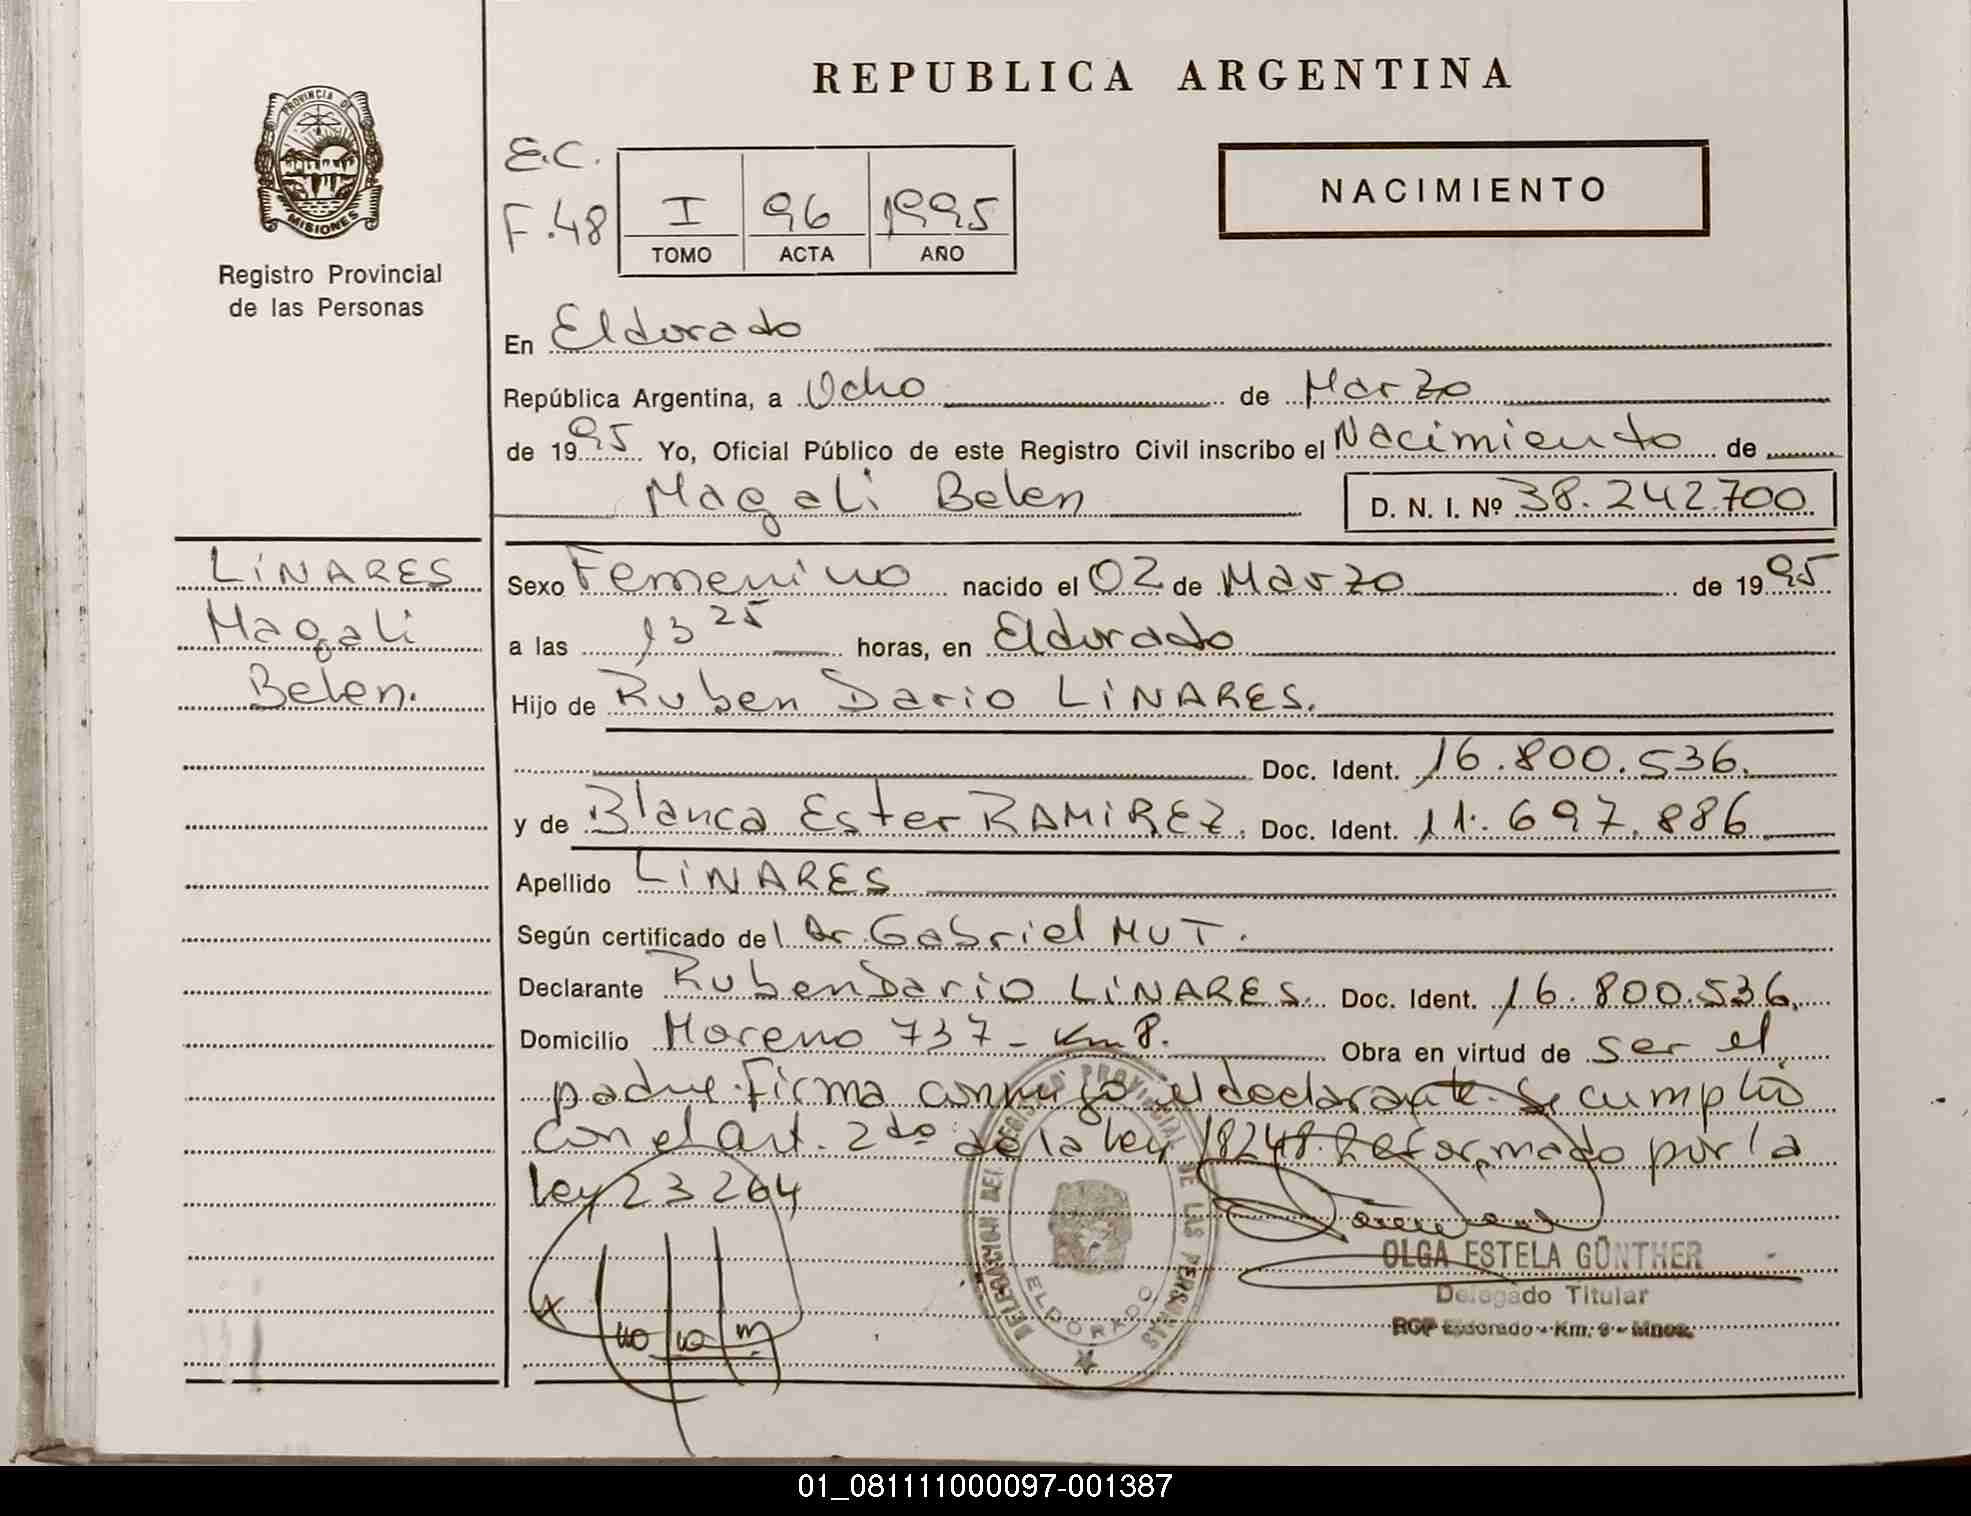 REPUBLICA ARGENTINA
PROVINCIA DE
MISIONES
Registro Provincial
de las Personas
E.C.
F.48
I 96 1995
TOMO ACTA AÑO
NACIMIENTO
En Eldorado
República Argentina, a Ocho de Marzo
de 1995 Yo, Oficial Público de este Registro Civil inscribo el Nacimiento de
Magali Belen D. N. I. Nº 38.242.700
LiNARES
Magali
Belen.
Sexo Femenino nacido el 02 de Marzo de 1995
a las 13 25 horas, en Eldorado
Hijo de Ruben Dario LiNARES.
Doc. Ident. 16.800.536.
y de Blanca Ester RAMiREZ. Doc. Ident. 11.697.886
Apellido LiNARES
Según certificado del Dr Gabriel MUT.
Declarante Ruben Dario LiNARES. Doc. Ident. 16.800.536.
Domicilio Moreno 737 - Km 8. Obra en virtud de ser el
padre. Firma conmigo el declarante. Se cumplio
con el art. 2do de la ley 18248. Reformado por la
ley 23264
DELEGACION DEL REGISTRO PROVINCIAL DE LAS PERSONAS
ELDORADO
OLGA ESTELA GÜNTHER
Delegado Titular
RGP Eldorado - Km. 9 - Mnes.
01_081111000097-001387